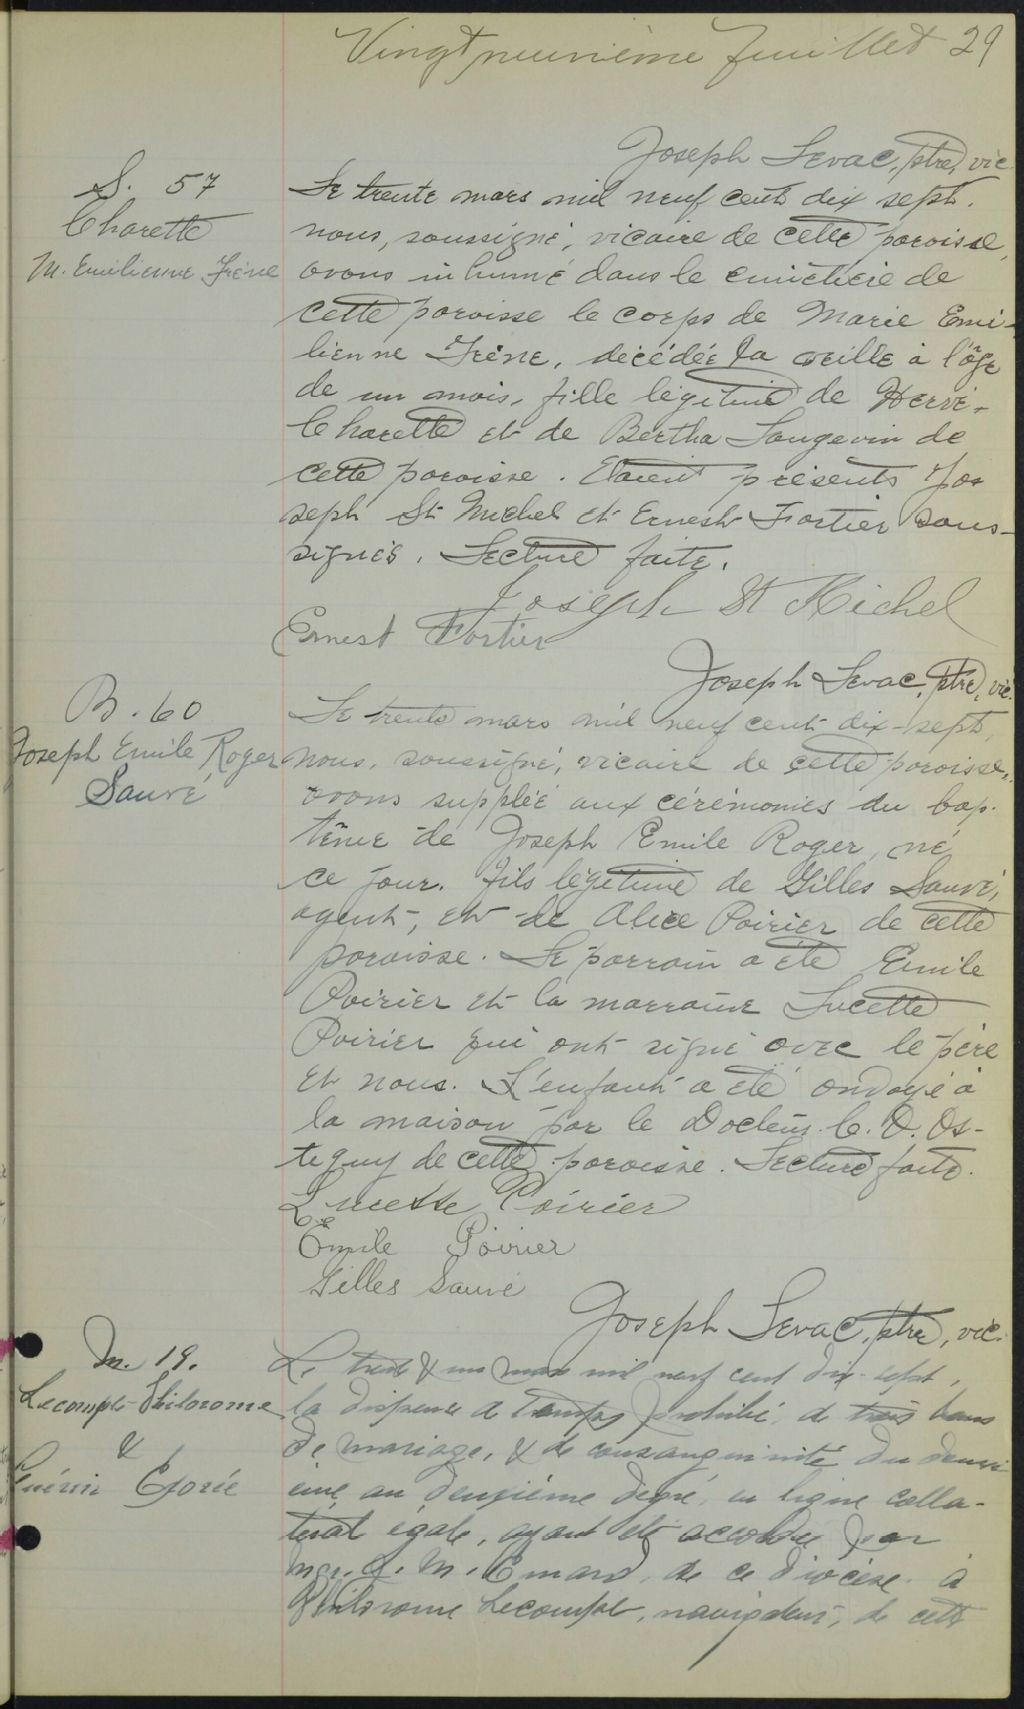 Vingt neuvième feuillet 29
Joseph Levac, ptre, vic.
S. 57
Charette
M. Emilienne Irène
Le trente mars mil neuf cent dix sept.
nous, soussigné, vicaire de cette paroisse,
avons inhumé dans le cimetière de
cette paroisse le corps de Marie Emi-
lienne Irène, décédée la veille à l'âge
de un mois, fille légitime de Hervé-
Charette et de Bertha Langevin de
cette paroisse. Etaient présents Jo-
seph St Michel et Ernest Fortier sous-
signés. Lecture faite.
Joseph St Michel
Ernest Fortier
Joseph Levac, ptre, vic.
B. 60
Joseph Emile Roger
Sauvé
Le trente mars mil neuf cent dix-sept,
nous, soussigné, vicaire de cette paroisse,
avons suppléé aux cérémonies du bap-
tême de Joseph Emile Roger, né
ce jour. fils légitime de Gilles Sauvé,
agent, et de Alice Poirier de cette
paroisse. Le parrain a été Emile
Poirier et la marraine Lucette
Poirier qui ont signé avec le père
et nous. L'enfant a été ondoyé à
la maison par le Docteur C. O. Os-
tiguy de cette paroisse. Lecture faite.
Lucette Poirier
Emile Poirier
Gilles Sauvé
Joseph Levac, ptre, vic.
M. 19.
Lecompte Philorome
&
Guérin
Le trente & un mars mil neuf cent dix-sept,
la dispense de temps prohibé, de trois bans
de mariage, & de consanguinité du deuxi-
ème au deuxième degré, en ligne colla-
téral égale, ayant été accordée par
Mgr. J. M. Emard, de ce diocèse. à
Philorome Lecompte, navigateur, de cette